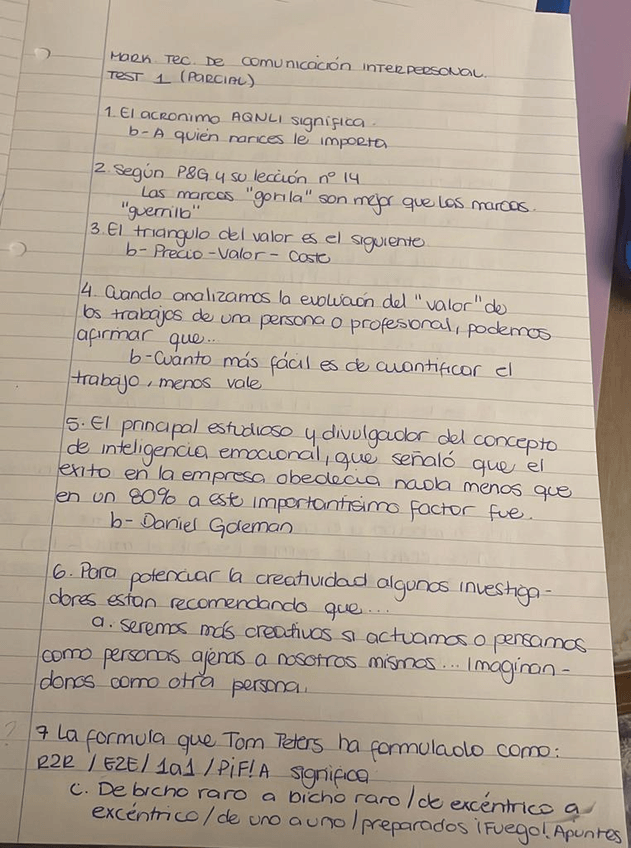 MARK TEC. DE COMUNICACIÓN INTERPERSONAL.
TEST 1 (PARCIAL)
1. El acronimo AQNLI significa
b- A quién narices le importa
2. Según P&G y su lección nº 14
Las marcas "gorila" son mejor que las marcas
"guerrilla"
3. El triangulo del valor es el siguiente
b- Precio - Valor - Coste
4. Cuando analizamos la evolución del "valor" de
los trabajos de una persona o profesional, podemos
afirmar que...
b- Cuánto más fácil es de cuantificar el
trabajo, menos vale
5. El principal estudioso y divulgador del concepto
de inteligencia emocional, que señaló que el
exito en la empresa obedecia nada menos que
en un 80% a este importantisimo factor fue.
b- Daniel Goleman
6. Para potenciar la creatividad algunos investiga-
dores estan recomendando que...
a. seremos más creativos si actuamos o pensamos
como personas ajenas a nosotros mismos... Imaginan-
donos como otra persona.
? 7 La formula que Tom Peters ha formulado como:
R2R / E2E / 1a1 / PiF!A significa
c. De bicho raro a bicho raro / de excéntrico a
excéntrico / de uno a uno / preparados ¡Fuego! Apunten